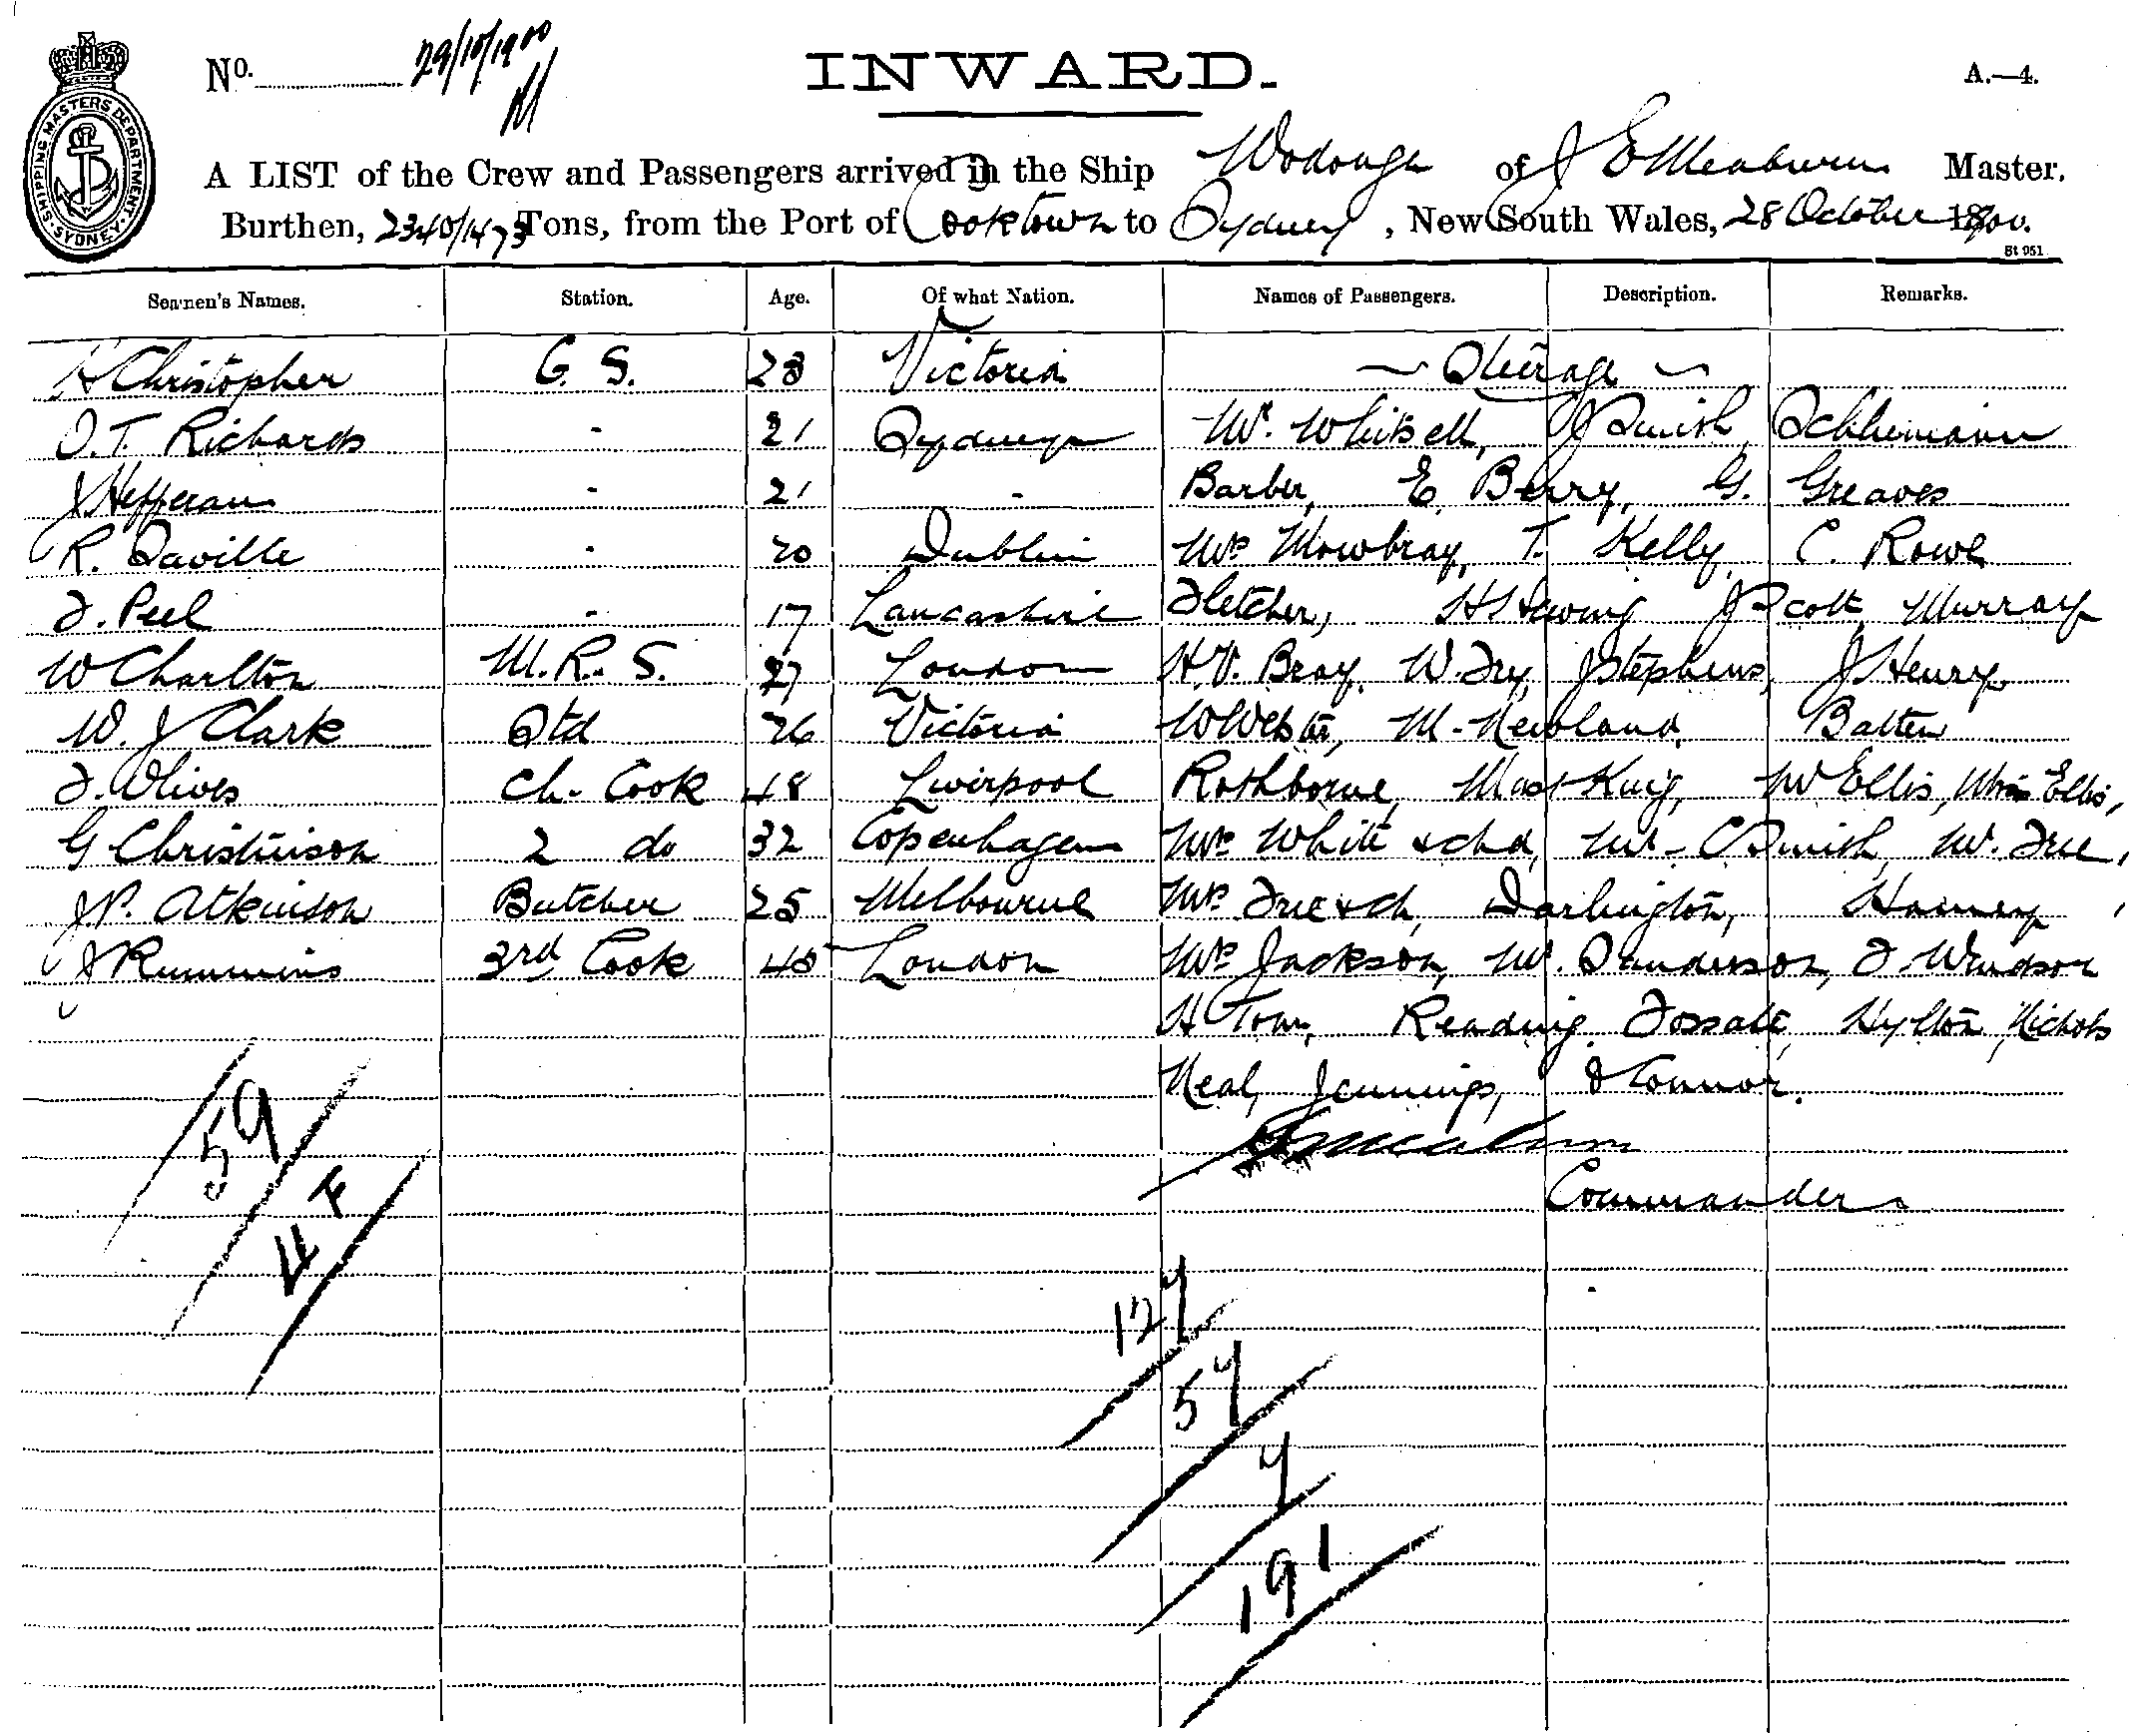 No. 29/10/1900
INWARD.
A.—4.
SHIPPING MASTERS DEPARTMENT. SYDNEY.
A LIST of the Crew and Passengers arrived in the Ship Wodonga of J E Meaburn Master.
Burthen, 2340/1473 Tons, from the Port of Cooktown to Sydney, New South Wales, 28 October 1900.
St 951
Seamen's Names. Station. Age. Of what Nation. Names of Passengers. Description. Remarks.
H Christopher G. S. 23 Victoria Steerage
O. T. Richards - 21 Sydney Mr. Whitsell, J Smith, Schliemann
J Hefferan - 21 - Barber, E Berry, G. Greaves
R. Saville - 20 Dublin Mrs Mowbray, T. Kelly, C. Rowe
F. Peel - 17 Lancashire Fletcher, H Hewing J Scott, Murray
W Charlton M. R. S. 27 London H. V. Bray, W. Fry, J Stephens, J Henry
W. J Clark Std 26 Victoria W Webster, M. Newland, Batten
F. Olives Ch. Cook 48 Liverpool Rothborne, Mast King, Mr Ellis, Miss Ellis,
G Christinson 2 do 32 Copenhagen Mrs White & chd, Mr. C Smith, Mr. Free,
J P. Atkinson Butcher 25 Melbourne Mrs Free & ch, Darlington, Harney,
J Rummins 3rd Cook 40 London Mrs Jackson, Mr. Sanderson, F. Windsor
H Tom, Reading, Fossati, Hylton, Nichols
Neal, Jennings, O'Connor.
Commander
59
44
127
57
7
191